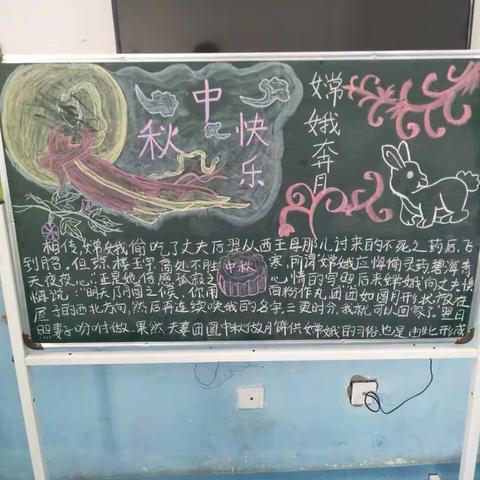 中秋快乐
嫦娥奔月
相传,嫦娥偷吃了丈夫后羿从西王母那儿讨来的不死之药后,飞
到月宫。但琼楼玉宇,高处不胜寒,所谓嫦娥应悔偷灵药,碧海青
中秋
天夜夜心,正是她倍感孤寂之心情的写照。后来嫦娥向丈夫
情说:"明天乃月圆之候,你用面粉作丸,团团如圆月形状,放在
屋子的西北方向,然后再连续唤我的名字。三更时分,我就可以回家了。翌日
照妻子吩咐做,果然,夫妻团圆,中秋做月饼供嫦娥的习俗,也是由此形成